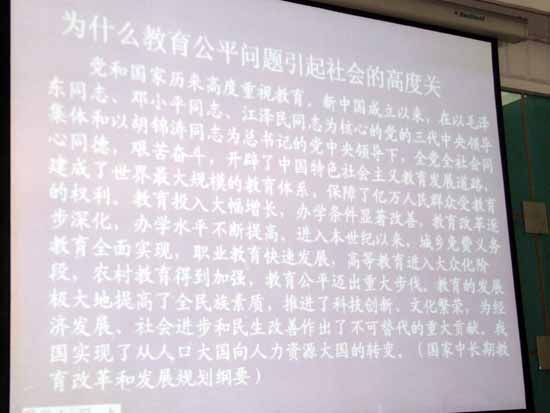 为什么教育公平问题引起社会的高度关
党和国家历来高度重视教育。新中国成立以来，在以毛泽
东同志、邓小平同志、江泽民同志为核心的党的三代中央领导
集体和以胡锦涛同志为总书记的党中央领导下，全党全社会同
心同德，艰苦奋斗，开辟了中国特色社会主义教育发展道路，
建成了世界最大规模的教育体系，保障了亿万人民群众受教育
的权利。教育投入大幅增长，办学条件显著改善，教育改革逐
步深化，办学水平不断提高。进入本世纪以来，城乡免费义务
教育全面实现，职业教育快速发展，高等教育进入大众化阶
段，农村教育得到加强，教育公平迈出重大步伐。教育的发展
极大地提高了全民族素质，推进了科技创新、文化繁荣，为经
济发展、社会进步和民生改善作出了不可替代的重大贡献。我
国实现了从人口大国向人力资源大国的转变。（国家中长期教
育改革和发展规划纲要）